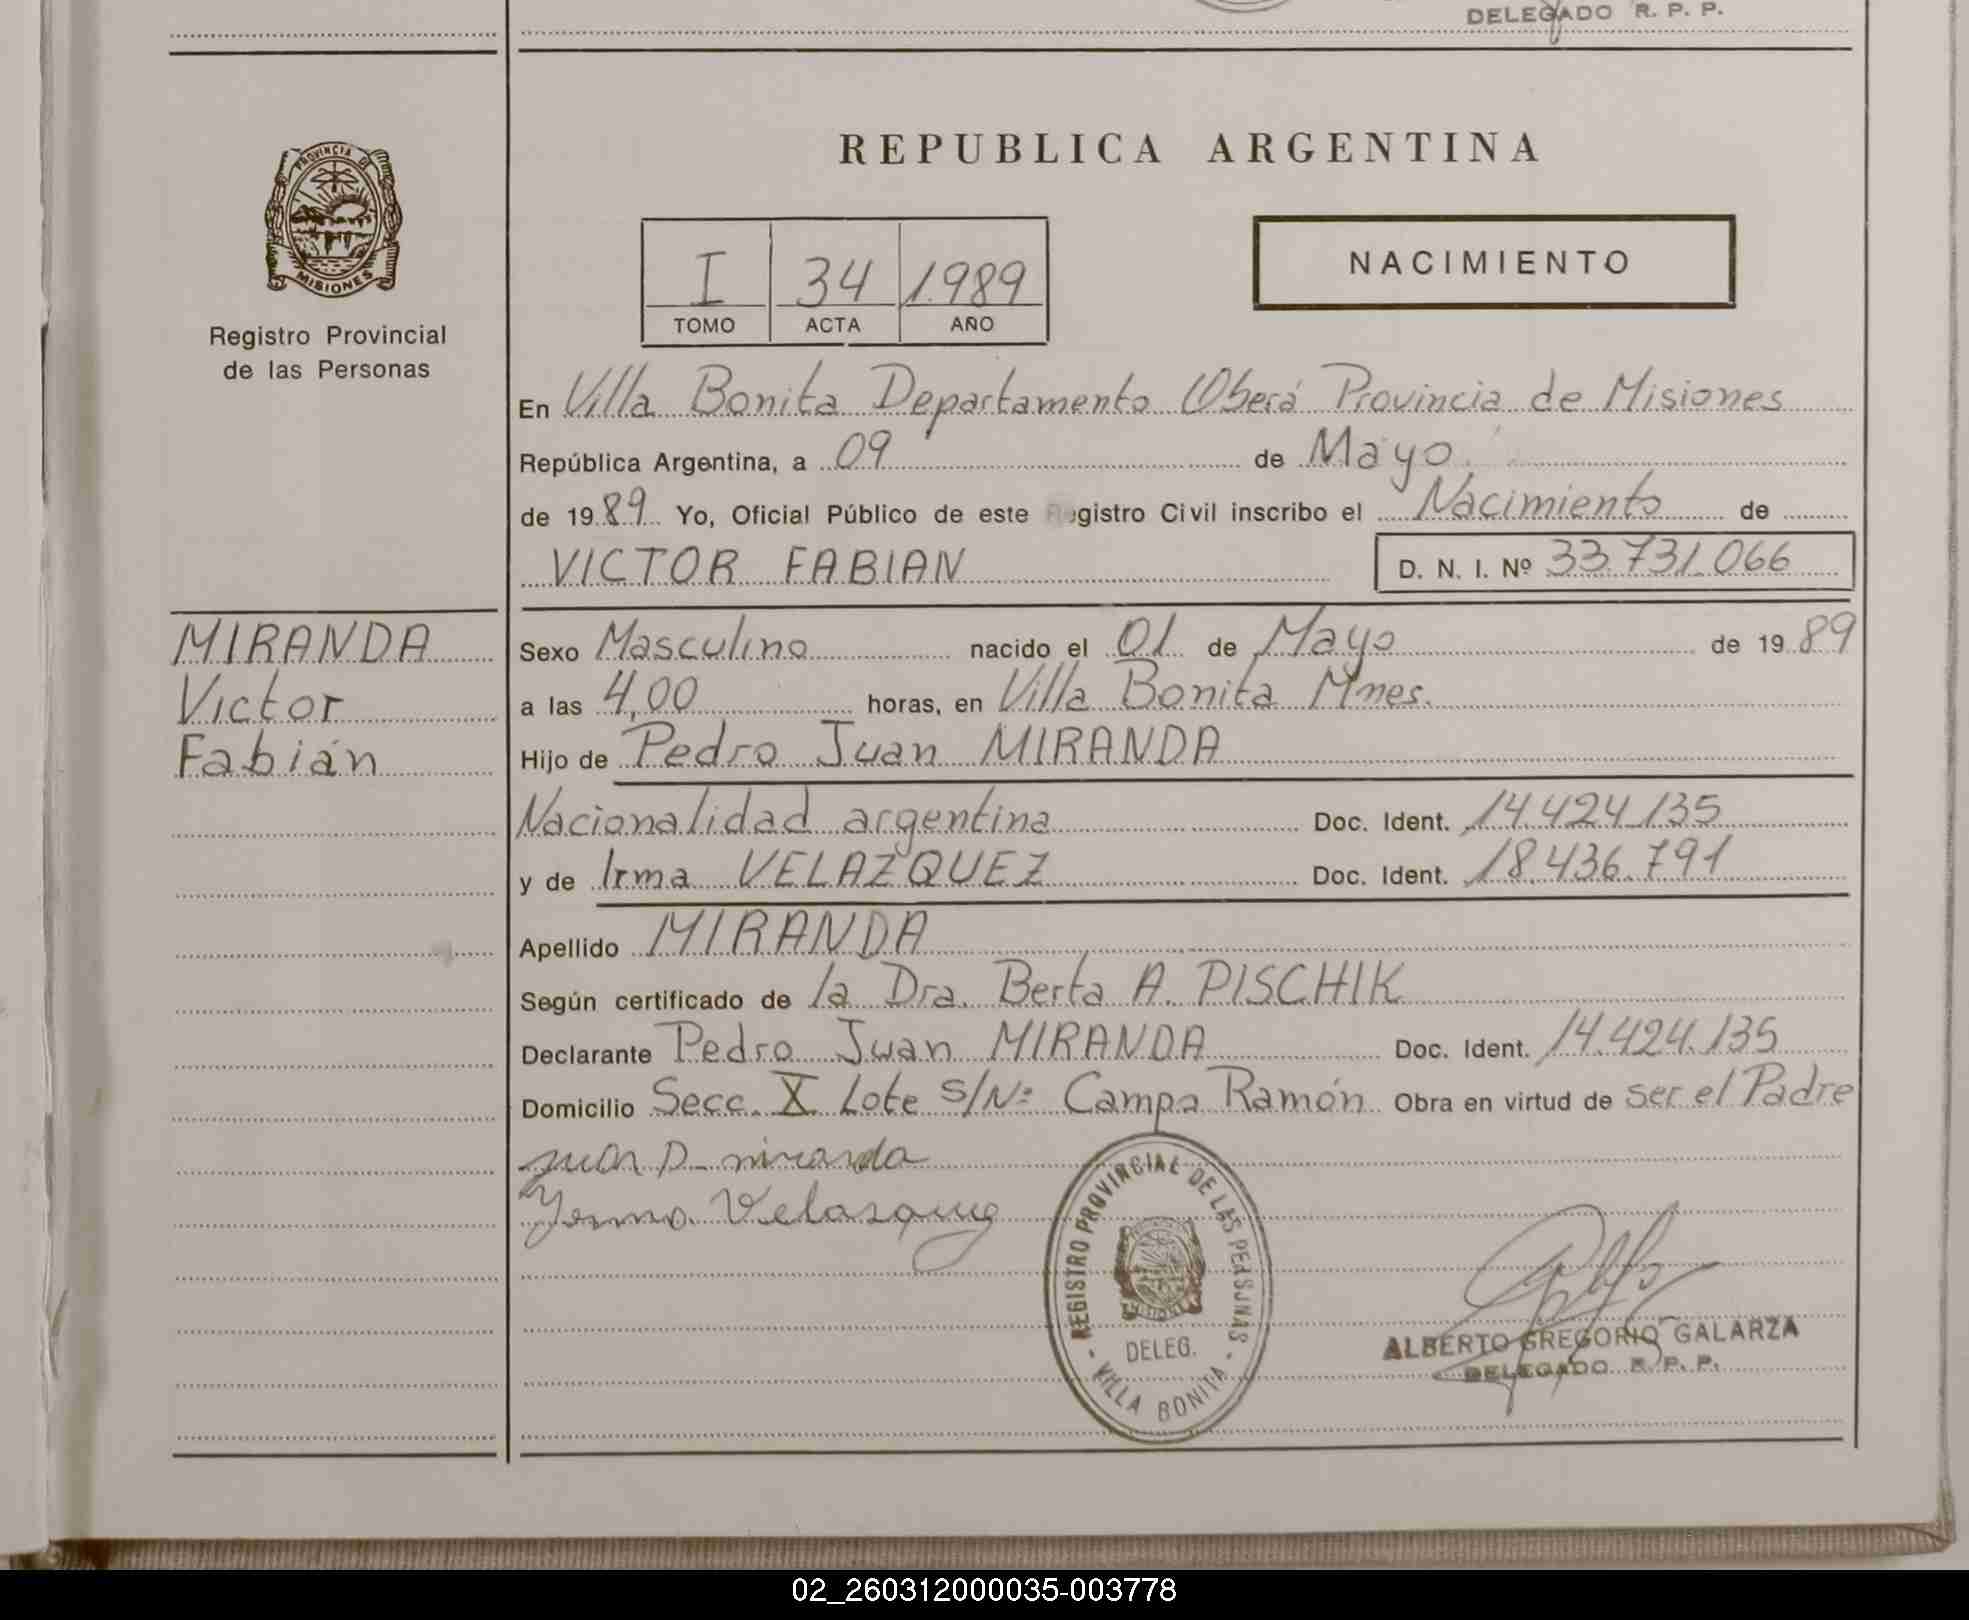 DELEGADO R. P. P.
PROVINCIA DE
MISIONES
Registro Provincial
de las Personas
REPUBLICA ARGENTINA
I 34 1989
TOMO ACTA AÑO
NACIMIENTO
En Villa Bonita Departamento Oberá Provincia de Misiones
República Argentina, a 09 de Mayo
de 1989 Yo, Oficial Público de este Registro Civil inscribo el Nacimiento de
VICTOR FABIAN D. N. I. Nº 33.731.066
MIRANDA
Victor
Fabián
Sexo Masculino nacido el 01 de Mayo de 1989
a las 4,00 horas, en Villa Bonita Mnes.
Hijo de Pedro Juan MIRANDA
Nacionalidad argentina Doc. Ident. 14.424.135
y de Irma VELAZQUEZ Doc. Ident. 18.436.791
Apellido MIRANDA
Según certificado de la Dra. Berta A. PISCHIK
Declarante Pedro Juan MIRANDA Doc. Ident. 14.424.135
Domicilio Secc. X Lote S/Nº Campo Ramón Obra en virtud de ser el Padre
Juan P. miranda
Velasquez
REGISTRO PROVINCIAL DE LAS PERSONAS
DELEG.
VILLA BONITA
ALBERTO GREGORIO GALARZA
DELEGADO R. P. P.
02_260312000035-003778